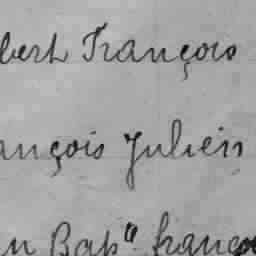 bert François
ançois Julien
n Bapte françois